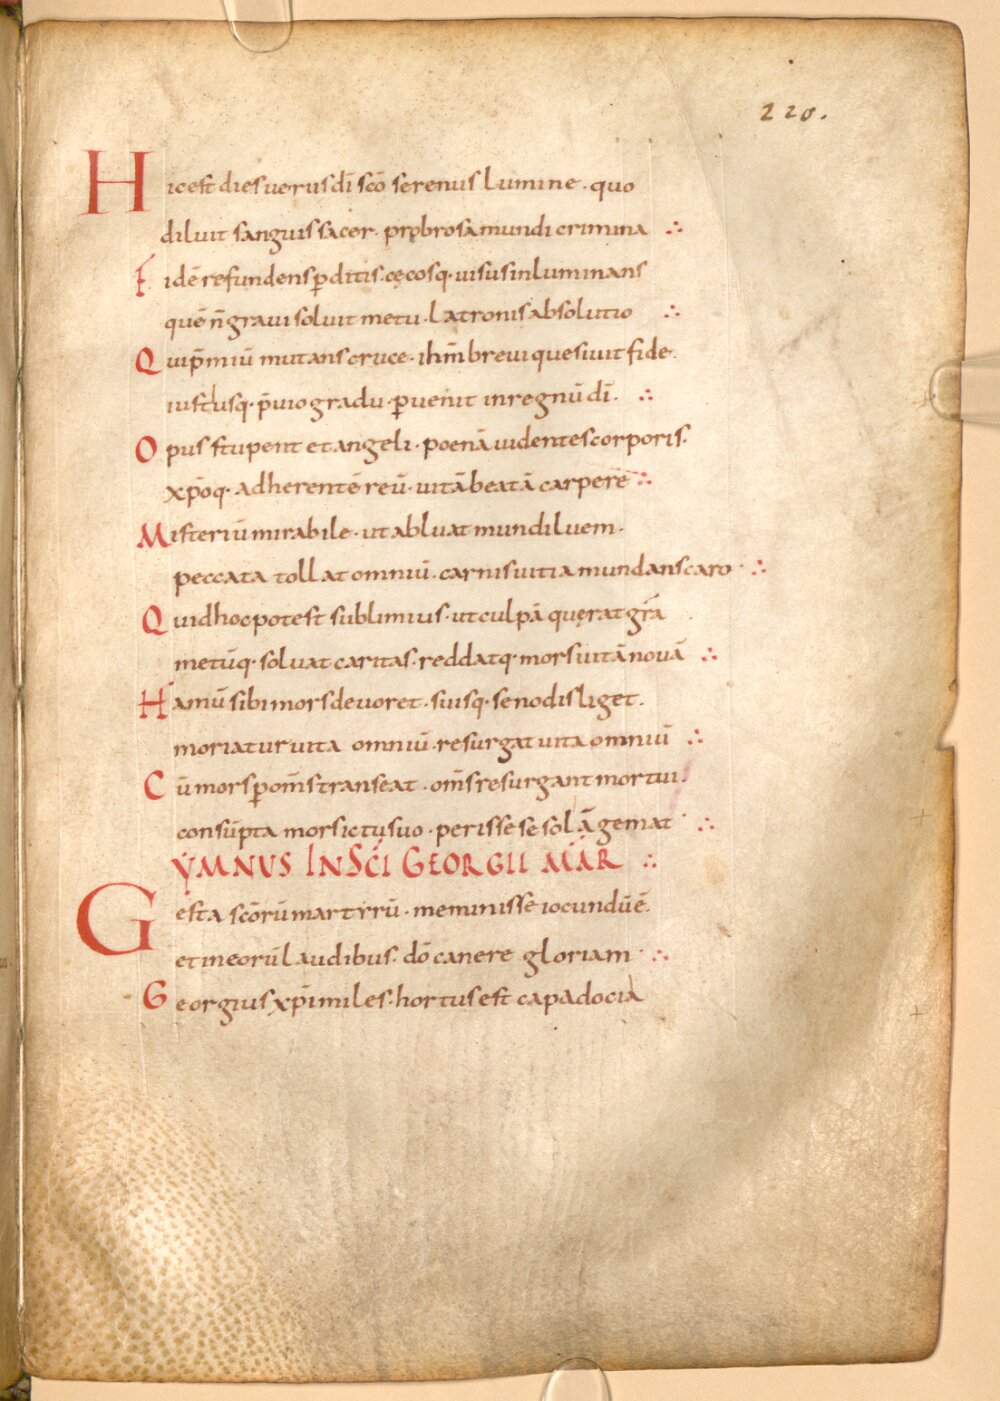 220.
Hic est dies uerus dī scō serenus lumine · quo
diluit sanguis sacer · probrosa mundi crimina ∴
Fidē refundens ꝑditis · cęcosq· uisus inluminans
quē n̄ graui soluit metu · Latronis absolutio ∴
Qui p̄miū mutans cruce · ihm̄ breui quesiuit fide·
iustusq· p̄uio gradu · ꝑuenit in regnū dī · ∴
Opus stupent et angeli · poenā uidentes corporis·
xp̄oq· adherentē reū · uitā beatā carpere ∴
Misteriū mirabile · ut abluat mundi luem ·
peccata tollat omniū · carnis uitia mundans caro · ∴
Quid hoc potest sublimius · ut culpā quęrat grā
metūq· soluat caritas · reddatq· mors uitā nouā ∴
Hamū sibi mors deuoret · suisq· se nodis liget ·
moriatur uita omniū · resurgat uita omniū ∴
Cū mors ꝑ om̄s transeat · om̄s resurgant mortui ·
consūpta mors ictu suo · perisse se solā gemat ∴
YMNUS IN SC̄I GEORGII MAR ∴
Gesta scōrū martyrū · meminisse iocundū ē·
et in eorū laudibus · dō canere gloriam · ∴
Georgius xp̄i miles · hortus est capadocia